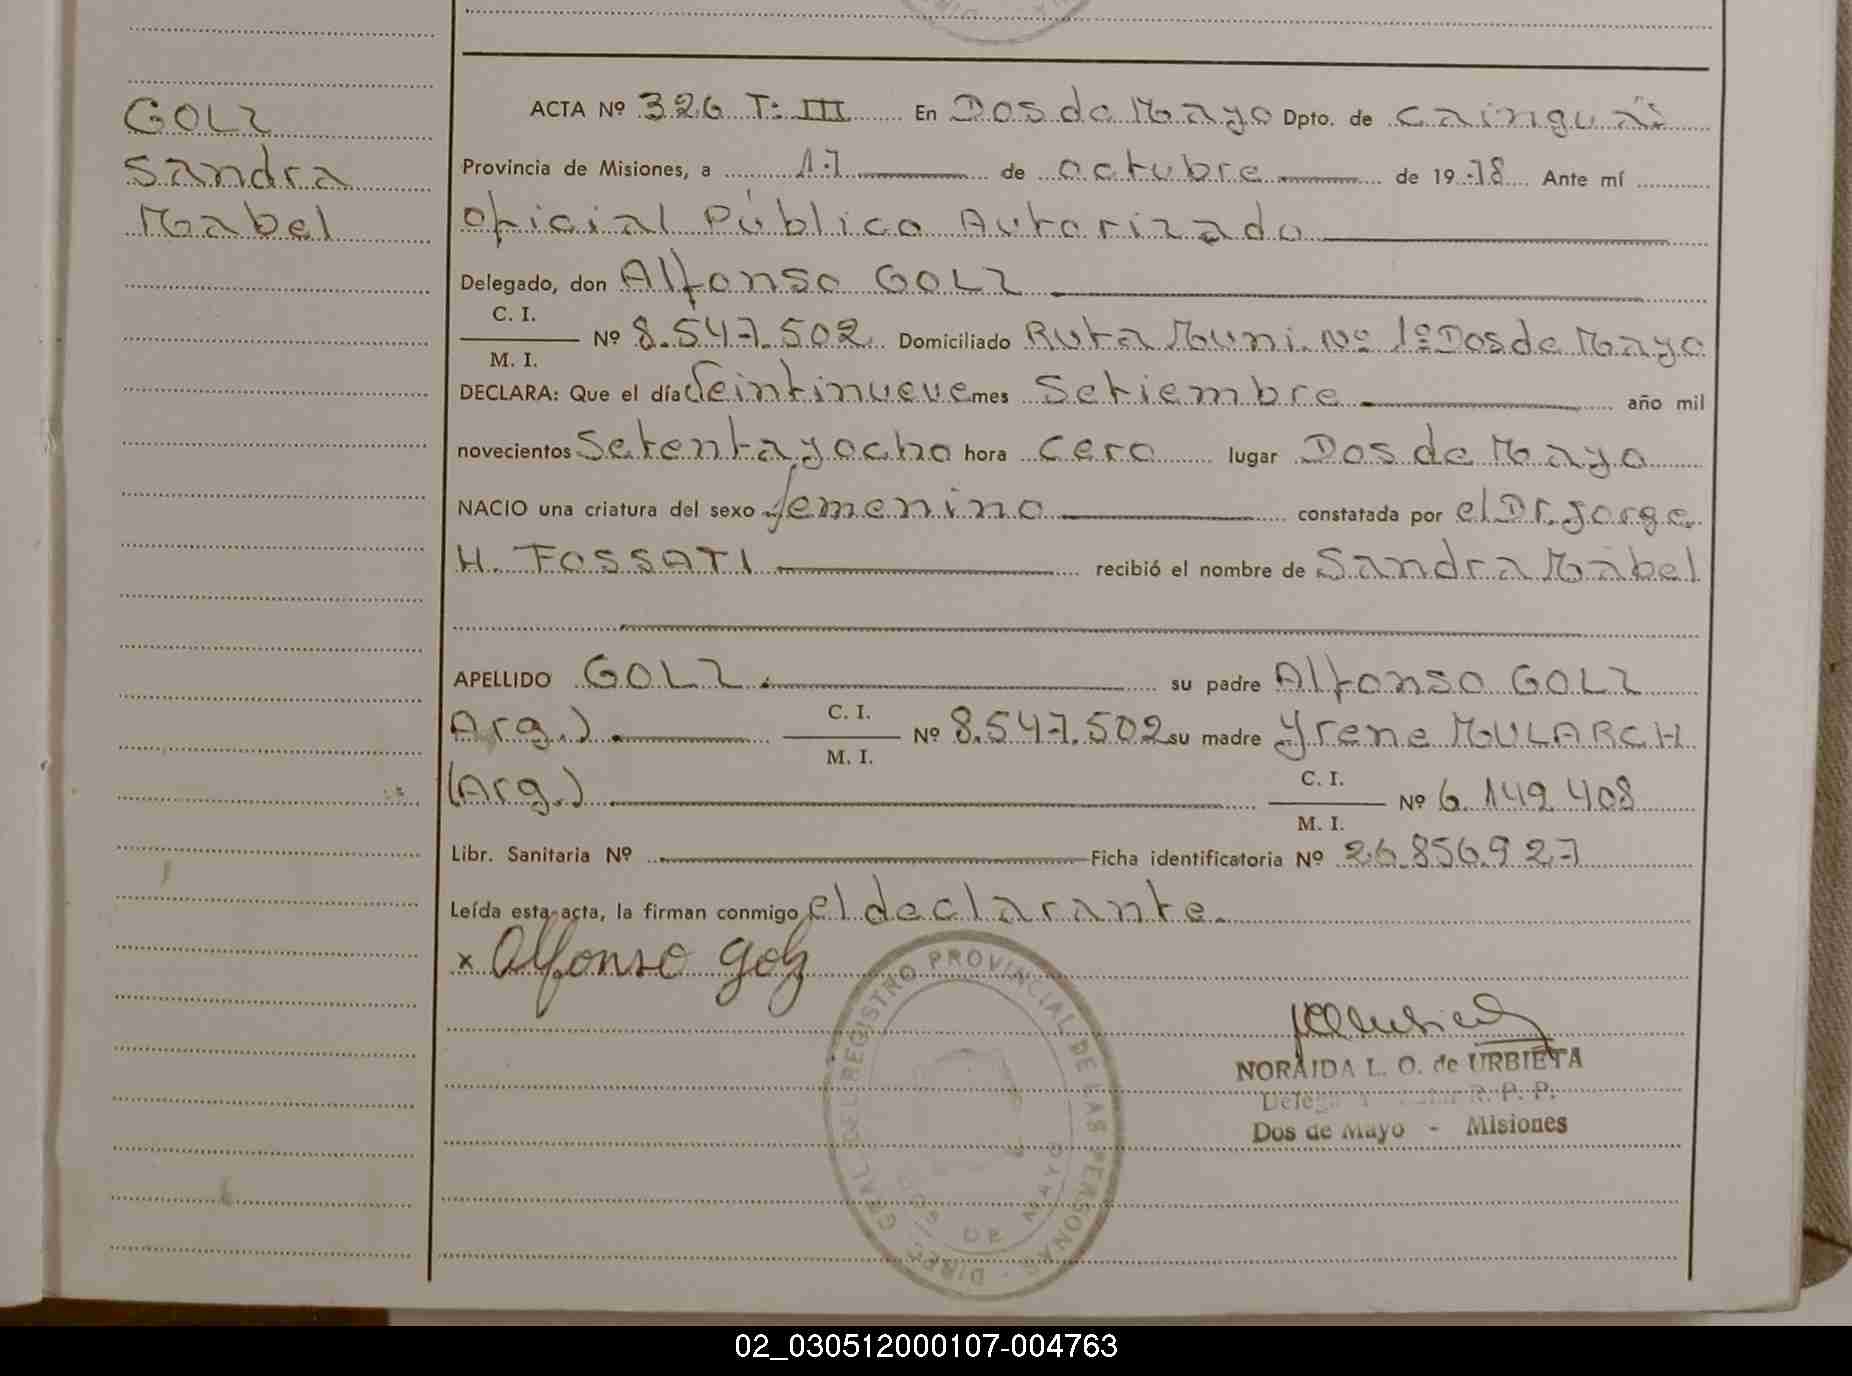 GOLZ
Sandra
Mabel
ACTA Nº 326 T: III En Dos de Mayo Dpto. de Cainguás
Provincia de Misiones, a 17 de octubre de 1978 Ante mí
Oficial Público Autorizado
Delegado, don Alfonso GOLZ
C. I.
M. I.
Nº 8.547.502 Domiciliado Ruta Muni. Nº 1º Dos de Mayo
DECLARA: Que el día Veintinueve mes Setiembre año mil
novecientos Setenta y ocho hora cero lugar Dos de Mayo
NACIO una criatura del sexo femenino constatada por el Dr. Jorge
H. FOSSATI recibió el nombre de Sandra Mabel
APELLIDO GOLZ su padre Alfonso GOLZ
Arg.) C. I. M. I. Nº 8.547.502 su madre Yrene MULARCH
(Arg.) C. I. M. I. Nº 6.149.408
Libr. Sanitaria Nº Ficha identificatoria Nº 26.856.927
Leída esta acta, la firman conmigo el declarante.
x Alfonso Golz
DIREC. GRAL. DEL REGISTRO PROVINCIAL DE LAS PERSONAS
DOS DE MAYO
NORAIDA L. O. de URBIETA
R. P. P.
Dos de Mayo - Misiones
02_030512000107-004763